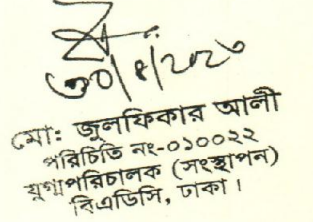 ৩০/৪/২০২৩
মো: জুলফিকার আলী
পরিচিতি নং-০১০০২২
যুগ্মপরিচালক (সংস্থাপন)
বিএডিসি, ঢাকা।